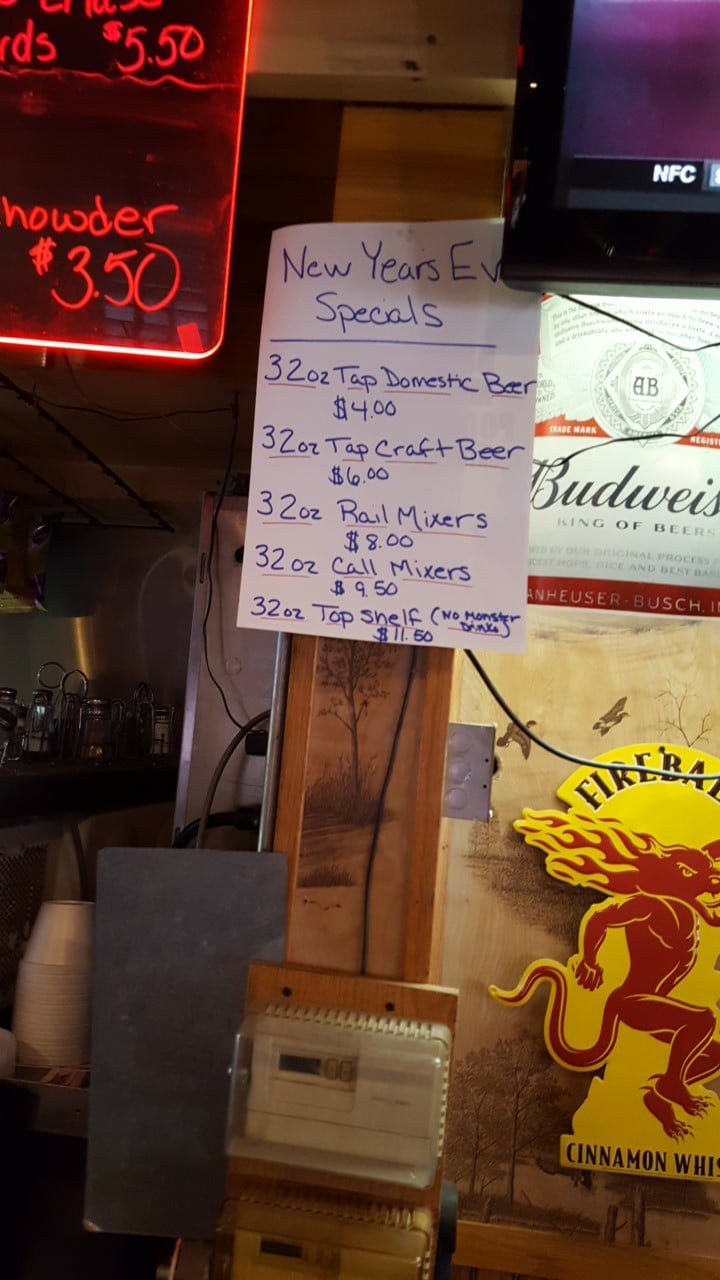 $5.50
$3.50
NFC
New Years Ev
Specials
32oz Tap Domestic Beer
$4.00
32oz Tap Craft Beer
$6.00
32oz Rail Mixers
$8.00
32oz Call Mixers
$9.50
32oz Top Shelf (No Monster
Drinks)
$11.50
AB
TRADE MARK
REGIST
Budweis
KING OF BEERS
ANHEUSER-BUSCH, I
FIREBA
CINNAMON WHIS